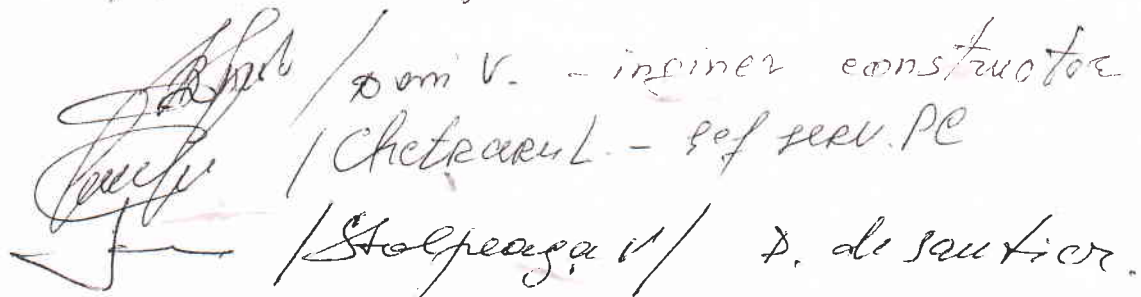 / Doni V. - inginer constructor
/ Chetraru L. - șef serv. PC
/ Stolpeaga V / D. de santier.